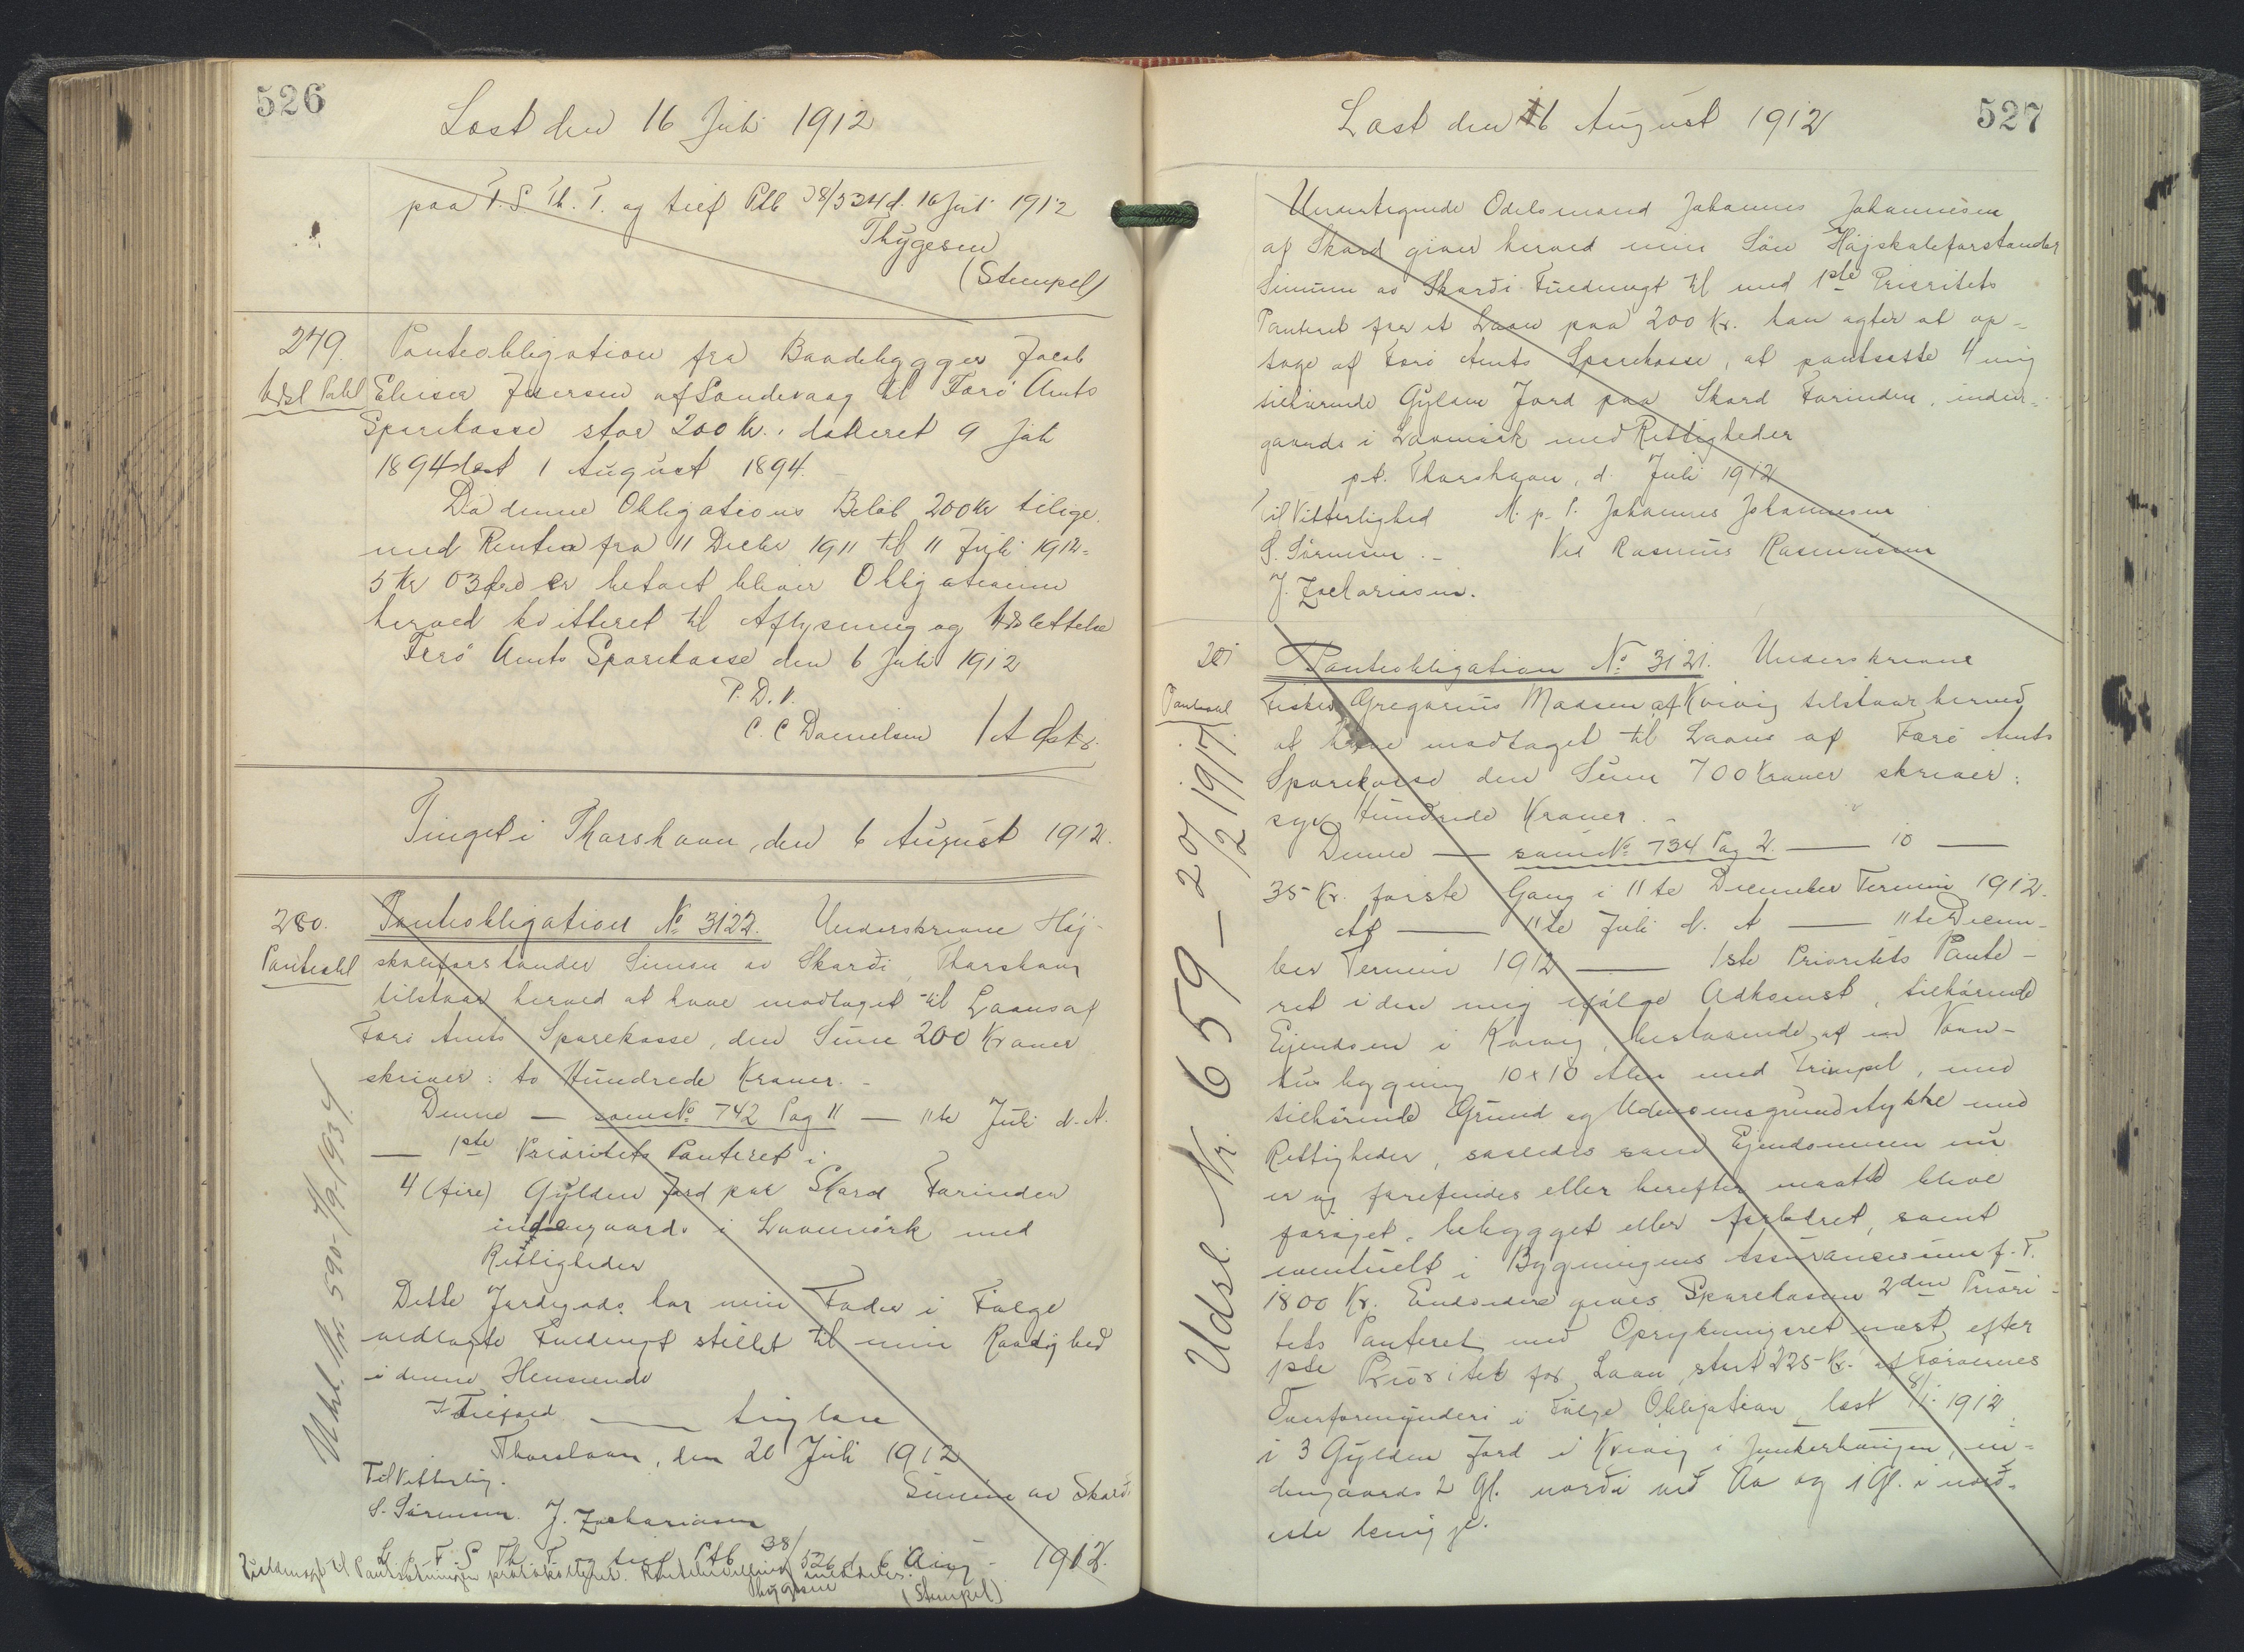 526
Læst den 16 Juli 1912
paa F. S. Th. T. og tilf Ptb 38/524 d. 16 Juli 1912
Thygesen
(Stempel)
279. Panteobligation fra Baadebygger Jacob
Udsl Pobl Elieser Joensen af Sandevaag til Færö Amts
Sparekasse stor 200 Kr., dateret 9 Juli
1894 læst 1 August 1894.
Da denne Obligations Belöb 200 Kr tilige
med Renter fra 11 Decbr 1911 til 11 Juli 1912 =
5 Kr 03 er betalt bliver Obligationen
herved kvitteret til Aflysning og Udslettelse
Færö Amts Sparekasse den 6 Juli 1912
P. D. V.
C. C Danielsen
Tinget i Thorshavn, den 6 August 1912.
280. Panteobligation No 3122. Underskrevne Höj-
Panteobl skoleforstander Simun av Skarði, Thorshavn
tilstaar herved at have modtaget til Laans af
Færö Amts Sparekasse, den Sum 200 Kroner
skriver: to Hundrede Kroner. -
Denne — som No 742 Pag 11 — 11te Juli d. A.
— 1ste Prioritets Panteret i
4 (fire) Gylden Jord paa Skard Farinden
indengaards i Lavmörk med
Rettigheder
Dette Jordegods har min Fader i Fölge
vedlagte Fuldmagt stillet til min Raadighed
i denne Henseende
I Tilfæld — ting læse
Thorshavn, den 20 Juli 1912
Til Vitterlig. Simun av Skarði
S. Sörensen. J. Zachariasen
L. p. F. S. Th. T. og tilf Ptb 38/526 d. 6 Aug - 1912.
Fuldmagt til Pantsætningen protokolleret.
Thygesen (Stempel)
Udsl. Nr. 590 - 4/9 1934
527
Læst den 6 August 1912
Undertegnede Odelsmand Johannes Johannesen
af Skard giver herved min Sön Höjskoleforstander
Simun av Skarði Fuldmagt til med 1ste Prioritets
Panteret for et Laan paa 200 Kr. han agter at op-
tage af Færö Amts Sparekasse, at pantsætte 4 mig
tilhörende Gylden Jord paa Skard Farinden, inden-
gaards i Lavmörk med Rettigheder
pt. Thorshavn, d. Juli 1912
Til Vitterlighed M. p. P. Johannes Johannesen
S. Sörensen. - Ved Rasmus Rasmussen
J. Zachariasen.
281 Panteobligation No 3121. Underskrevne
Panteobl Fisker Gregorius Madsen af Kvivig tilstaar herved
at have modtaget til Laans af Færö Amts
Sparekasse den Sum 700 Kroner skriver:
syv Hundrede Kroner. -
Denne — som No 734 Pag 2. — 10 —
35 Kr. förste Gang i 11te December Termin 1912.
Af — 11te Juli d. A — 11te Decem-
ber Termin 1912 — 1ste Prioritets Pante-
ret i den mig ifölge Adkomst, tilhörende
Ejendom i Kvivig, bestaaende af en Vaan-
hus bygning 10 x 10 Alen med Trinpel, med
tilhörende Grund og Udenomsgrundstykke med
Rettigheder, saaledes som Ejendommen nu
er og forefindes eller herefter maatte blive
foröjet, bebygget eller forbedret, samt
eventuelt i Bygningens Assurancesum f. T.
1800 Kr. Endvidere gives Sparekassen 2den Priori-
tets Panteret med Oprykningsret næst efter
1ste Prioritet for Laan stort 225 Kr. af Færöernes
Overformynderi i Fölge Obligation læst 8/1 1912
i 3 Gylden Jord i Kvivig i Junkerhaugen, in-
dengaards 2 Gl. norði við Áa og 1 Gl. i norð-
Udsl. Nr. 659 - 20/2 1917.